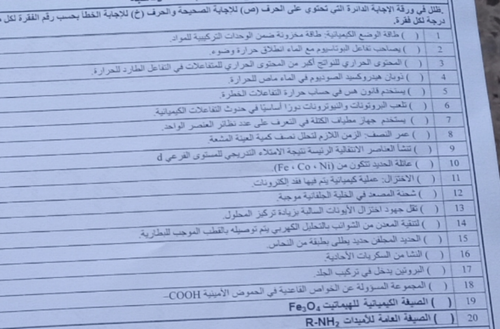 ظلل في ورقة الإجابة الدائرة التي تحتوي على الحرف (ص) للإجابة الصحيحة والحرف (خ) للإجابة الخطأ بحسب رقم الفقرة لكل
درجة لكل فقرة.
1 ( ) طاقة الوضع الكيميائية: طاقة مخزونة ضمن الوحدات التركيبية للمواد.
2 ( ) يصاحب تفاعل البوتاسيوم مع الماء انطلاق حرارة وضوء.
3 ( ) المحتوى الحراري للنواتج أكبر من المحتوى الحراري للمتفاعلات في التفاعل الطارد للحرارة.
4 ( ) ذوبان هيدروكسيد الصوديوم في الماء ماص للحرارة.
5 ( ) يستخدم قانون هس في حساب حرارة التفاعلات الخطرة.
6 ( ) تلعب البروتونات والنيوترونات دورًا أساسيًا في حدوث التفاعلات الكيميائية.
7 ( ) يستخدم جهاز مطياف الكتلة في التعرف على عدد نظائر العنصر الواحد.
8 ( ) عمر النصف: الزمن اللازم لتحلل نصف كمية العينة المشعة.
9 ( ) تنشأ العناصر الانتقالية الرئيسة نتيجة الامتلاء التدريجي للمستوى الفرعي d
10 ( ) عائلة الحديد تتكون من (Fe ، Co ، Ni).
11 ( ) الاختزال: عملية كيميائية يتم فيها فقد إلكترونات.
12 ( ) شحنة المصعد في الخلية الجلفانية موجبة.
13 ( ) تقل جهود اختزال الأيونات السالبة بزيادة تركيز المحلول.
14 ( ) لتنقية المعدن من الشوائب بالتحليل الكهربي يتم توصيله بالقطب الموجب للبطارية.
15 ( ) الحديد المجلفن حديد يطلى بطبقة من النحاس.
16 ( ) النشا من السكريات الأحادية.
17 ( ) البروتين يدخل في تركيب الجلد.
18 ( ) المجموعة المسؤولة عن الخواص القاعدية في الحموض الأمينية COOH–
19 ( ) الصيغة الكيميائية للهيماتيت Fe₃O₄
20 ( ) الصيغة العامة للأميدات R-NH₂